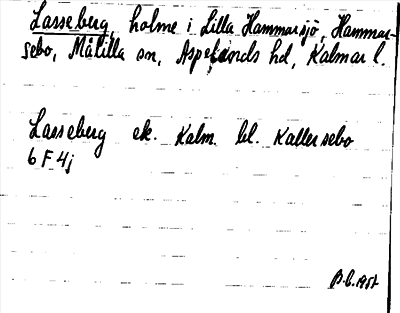 Lasseberg, holme i Lilla Hammarsjö, Hammar-
sebo, Målilla sn, Aspelands hd, Kalmar l.
Lasseberg ek. Kalm. bl. Kallersebo
6 F 4j
B.C. 1957